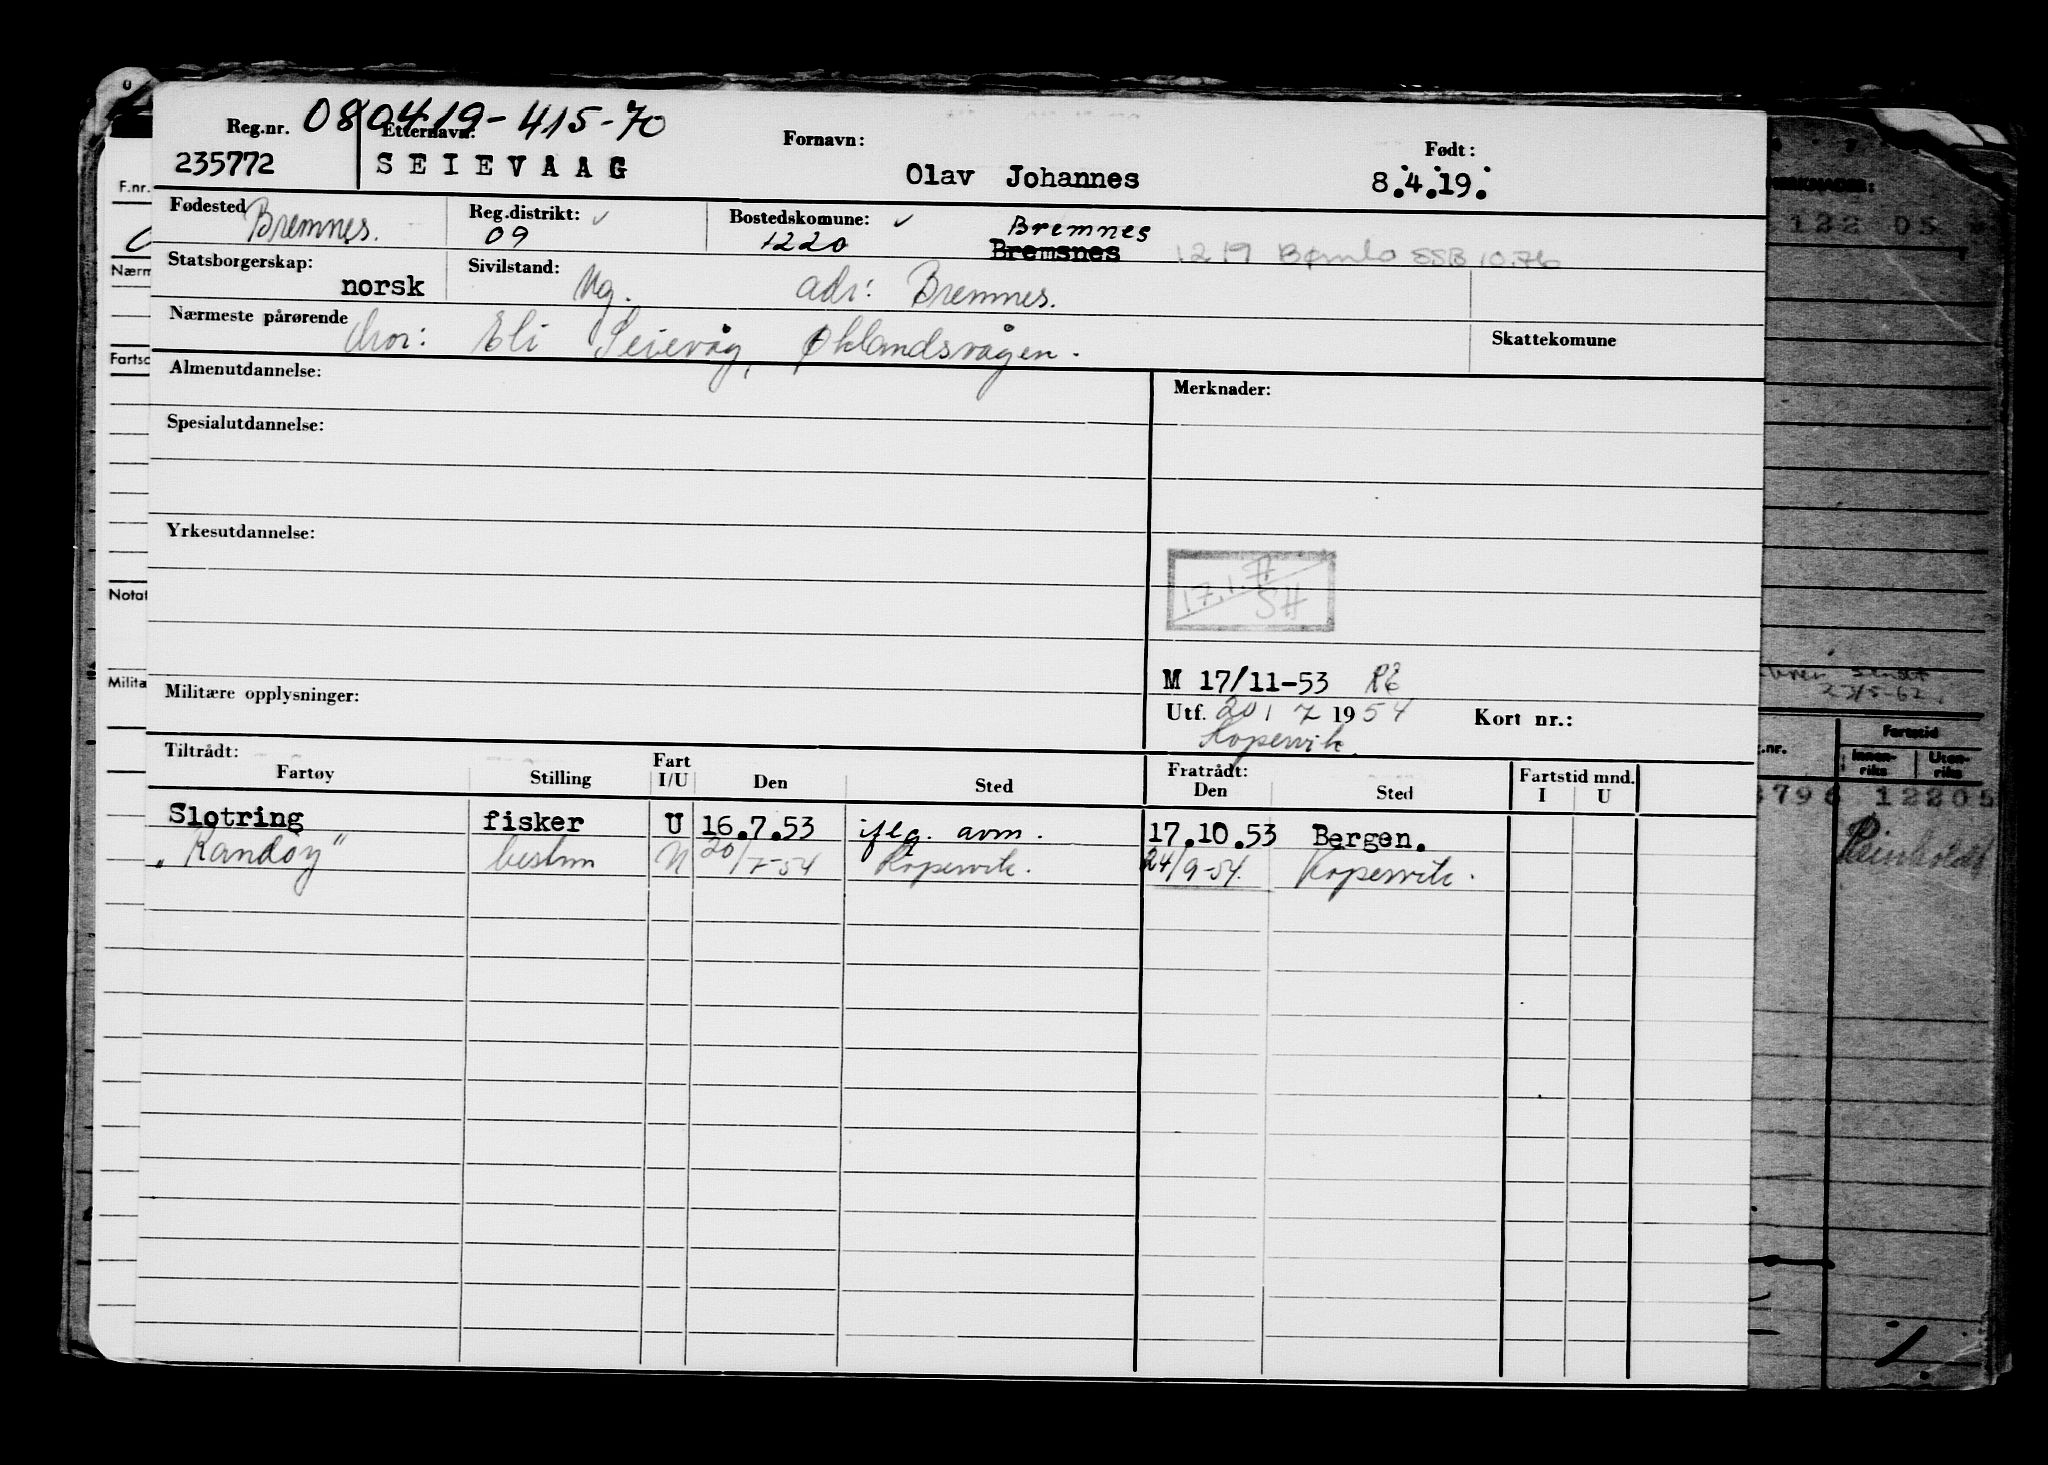 Reg.nr. 080419-415-70 Etternavn: Fornavn: Født:
235772 SEIEVAAG Olav Johannes 8.4.19.
Fødested Bremnes. Reg.distrikt: ✓ 09 Bostedskomune: ✓ 1220 Bremnes
Bremsnes 1219 Bømlo SSB 10.76
Statsborgerskap: norsk Sivilstand: Ug. adr: Bremnes.
Nærmeste pårørende Mor: Eli Seievåg, Øklandsvågen. Skattekomune
Almenutdannelse: Merknader:
Spesialutdannelse:
Yrkesutdannelse:
17.1.77
SH
M 17/11-53 RE
Militære opplysninger: Utf. 20 / 7 1954 Kort nr.:
Kopervik.
Tiltrådt: Fratrådt: Fartstid mnd.
Fartøy Stilling Fart I/U Den Sted Den Sted I U
Slotring fisker U 16.7.53 iflg. avm. 17.10.53 Bergen.
"Randøy" bestm N 20/7-54 Kopervik. 24/9-54. Kopervik.
F.nr.
Nærm
Fartsc
Notat
Militæ
MERKNADER:
122 05
sendt
23/5-62
.nr. Fartstid
Innen-riks Uten-riks
796 12205
Reinholdt